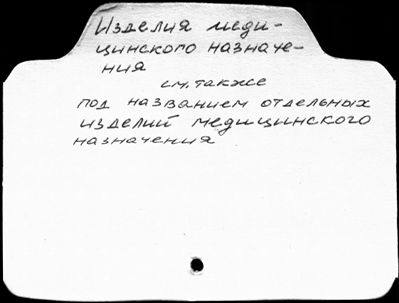 Изделия меди-
цинского назначе-
ния
см. также
под названием отдельных
изделий медицинского
назначения